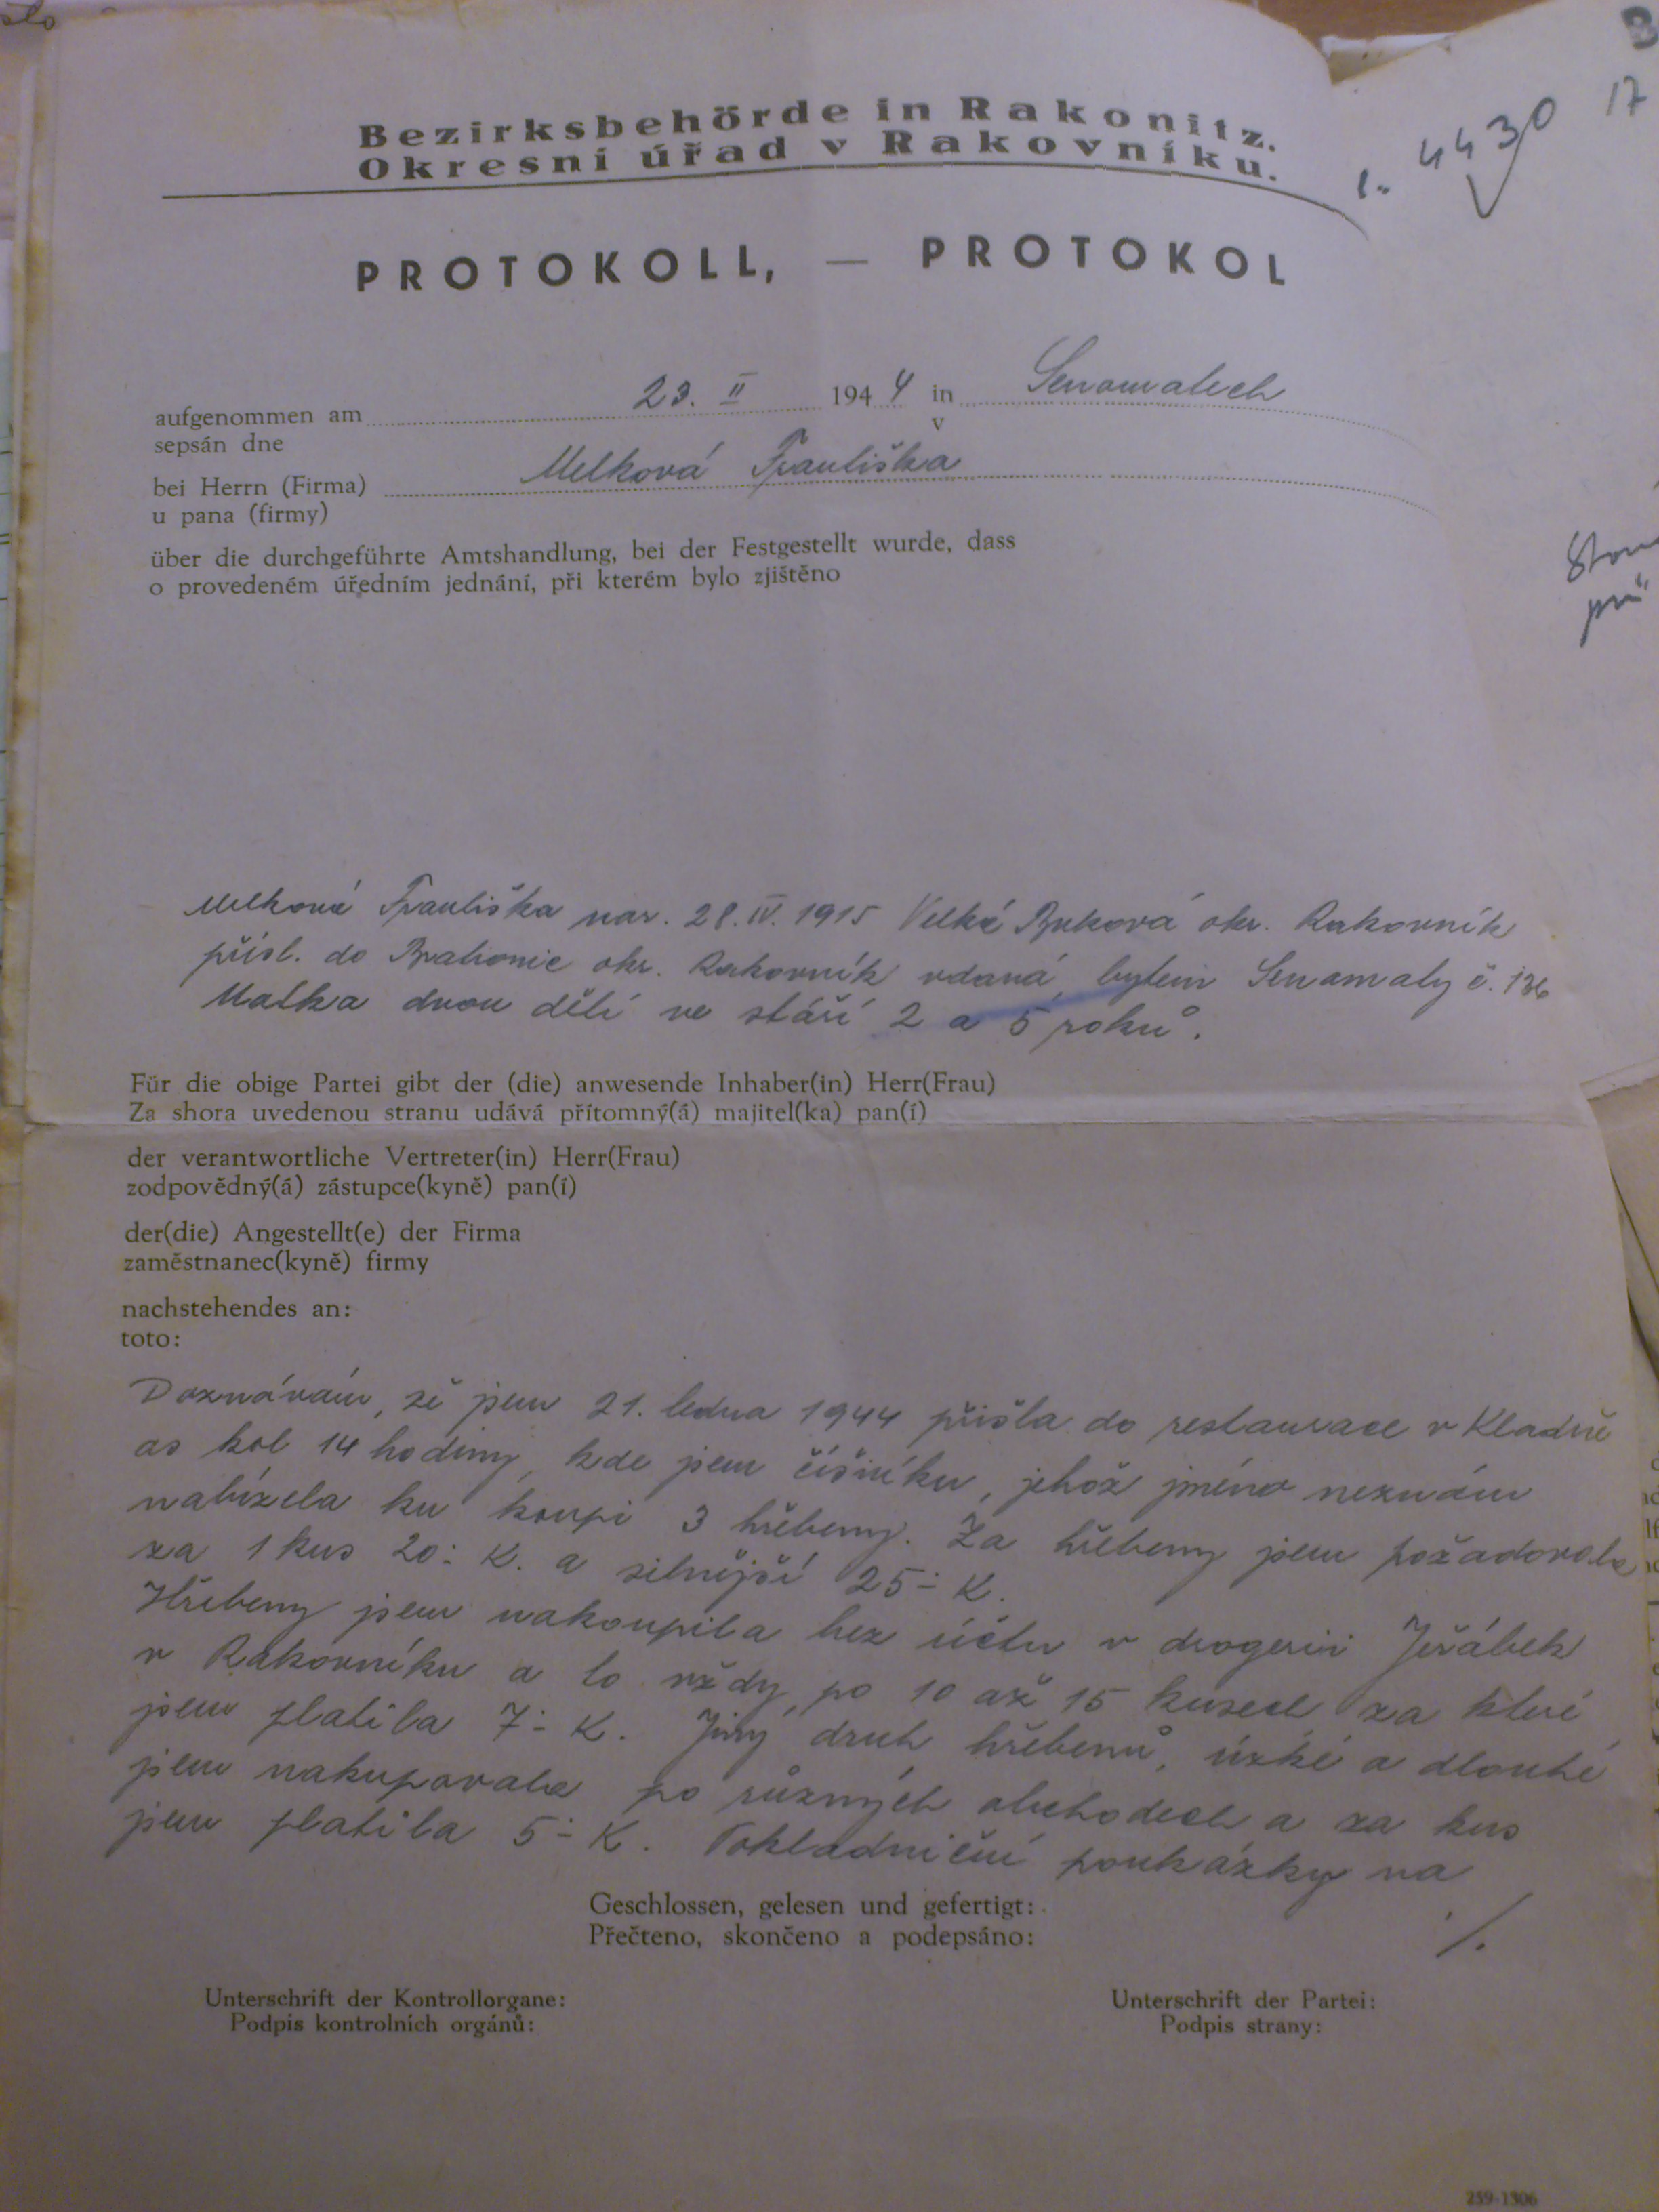 sto
B
17
1. 4430
Bezirksbehörde in Rakonitz.
Okresní úřad v Rakovníku.
PROTOKOLL, — PROTOKOL
aufgenommen am 23. II 1944 in Senomatech
sepsán dne v
bei Herrn (Firma) Melková Františka
u pana (firmy)
über die durchgeführte Amtshandlung, bei der Festgestellt wurde, dass
o provedeném úředním jednání, při kterém bylo zjištěno
Melková Františka nar. 28. IV. 1915 Velká Buková okr. Rakovník
přísl. do okr. Rakovník vdaná, bytem Senomaty č. 136
Matka dvou dětí ve stáří 2 a 5 roků.
Für die obige Partei gibt der (die) anwesende Inhaber(in) Herr(Frau)
Za shora uvedenou stranu udává přítomný(á) majitel(ka) pan(í)
der verantwortliche Vertreter(in) Herr(Frau)
zodpovědný(á) zástupce(kyně) pan(í)
der(die) Angestellt(e) der Firma
zaměstnanec(kyně) firmy
nachstehendes an:
toto:
Doznávám, že jsem 21. ledna 1944 přišla do restaurace v Kladně
as kol 14 hodiny, kde jsem číšníku, jehož jméno neznám
nabízela ku koupi 3 hřebeny. Za hřebeny jsem požadovala
za 1 kus 20.- K. a silnější 25.- K.
Hřebeny jsem nakoupila bez účtu v drogerii Jeřábek
v Rakovníku a to vždy po 10 až 15 kusech za které
jsem platila 7.- K. Jiný druh hřebenů, úzké a dlouhé
jsem nakupovala po různých obchodech a za kus
jsem platila 5.- K. Pokladniční poukázky na
Geschlossen, gelesen und gefertigt:
Přečteno, skončeno a podepsáno:
./.
Unterschrift der Kontrollorgane:
Podpis kontrolních orgánů:
Unterschrift der Partei:
Podpis strany:
259-1306